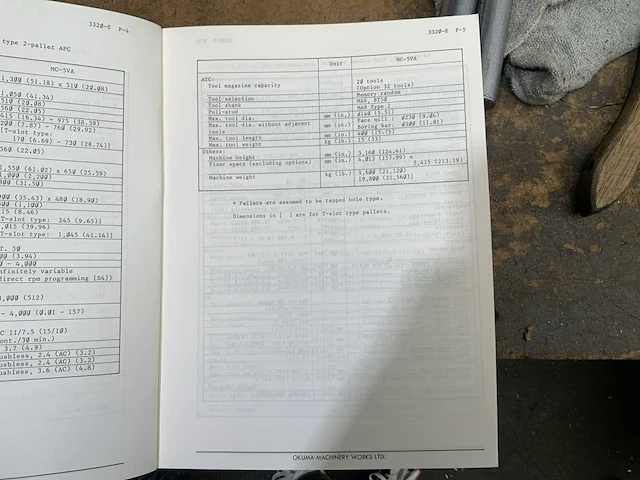 3320-E P-4
type 2-pallet APC
MC-5VA
1,300 (51.18) x 510 (20.08)
1,050 (41.34)
510 (20.08)
560 (22.05)
415 (16.34) - 975 (38.39)
200 (7.87) - 760 (29.92)
[T-slot type:
170 (6.69) - 730 (28.74)]
560 (22.05)
1,550 (61.02) x 650 (25.59)
1,000 (2,200)
800 (31.50)
(35.43) x 480 (18.90)
500 (1,100)
215 (8.46)
T-slot type: 245 (9.65)]
1,015 (39.96)
T-slot type: 1,045 (41.14)]
T. 50
(3.94)
0 - 4,000
nfinitely variable
direct rpm programming [S4])
4,000 (512)
- 4,000 (0.01 - 157)
AC 11/7.5 (15/10)
cont./30 min.)
3.7 (4.9)
ushless, 2.4 (AC) (3.2)
ushless, 2.4 (AC) (3.2)
ushless, 3.6 (AC) (4.8)
3320-E P-5
Unit MC-5VA
ATC:
Tool magazine capacity 20 tools
(Option 32 tools)
Tool selection Memory random
Tool shank MAS, BT50
Pull-stud MAS Type 2
Max. tool dia. mm (in.) ø140 (5.51)
Max. tool dia. without adjacent mm (in.) Face mill: ø230 (9.06)
tools Boring bar: ø300 (11.81)
Max. tool length mm (in.) 400 (15.75)
Max. tool weight kg (lb.) 15 (33)
Others:
Machine height mm (in.) 3,160 (124.41)
Floor space (excluding options) mm (in.) 4,013 (157.99) x
5,415 (213.19)
Machine weight kg (lb.) 9,600 (21,120)
[9,800 (21,560)]
* Pallets are assumed to be tapped hole type.
Dimensions in [ ] are for T-slot type pallets.
OKUMA MACHINERY WORKS LTD.